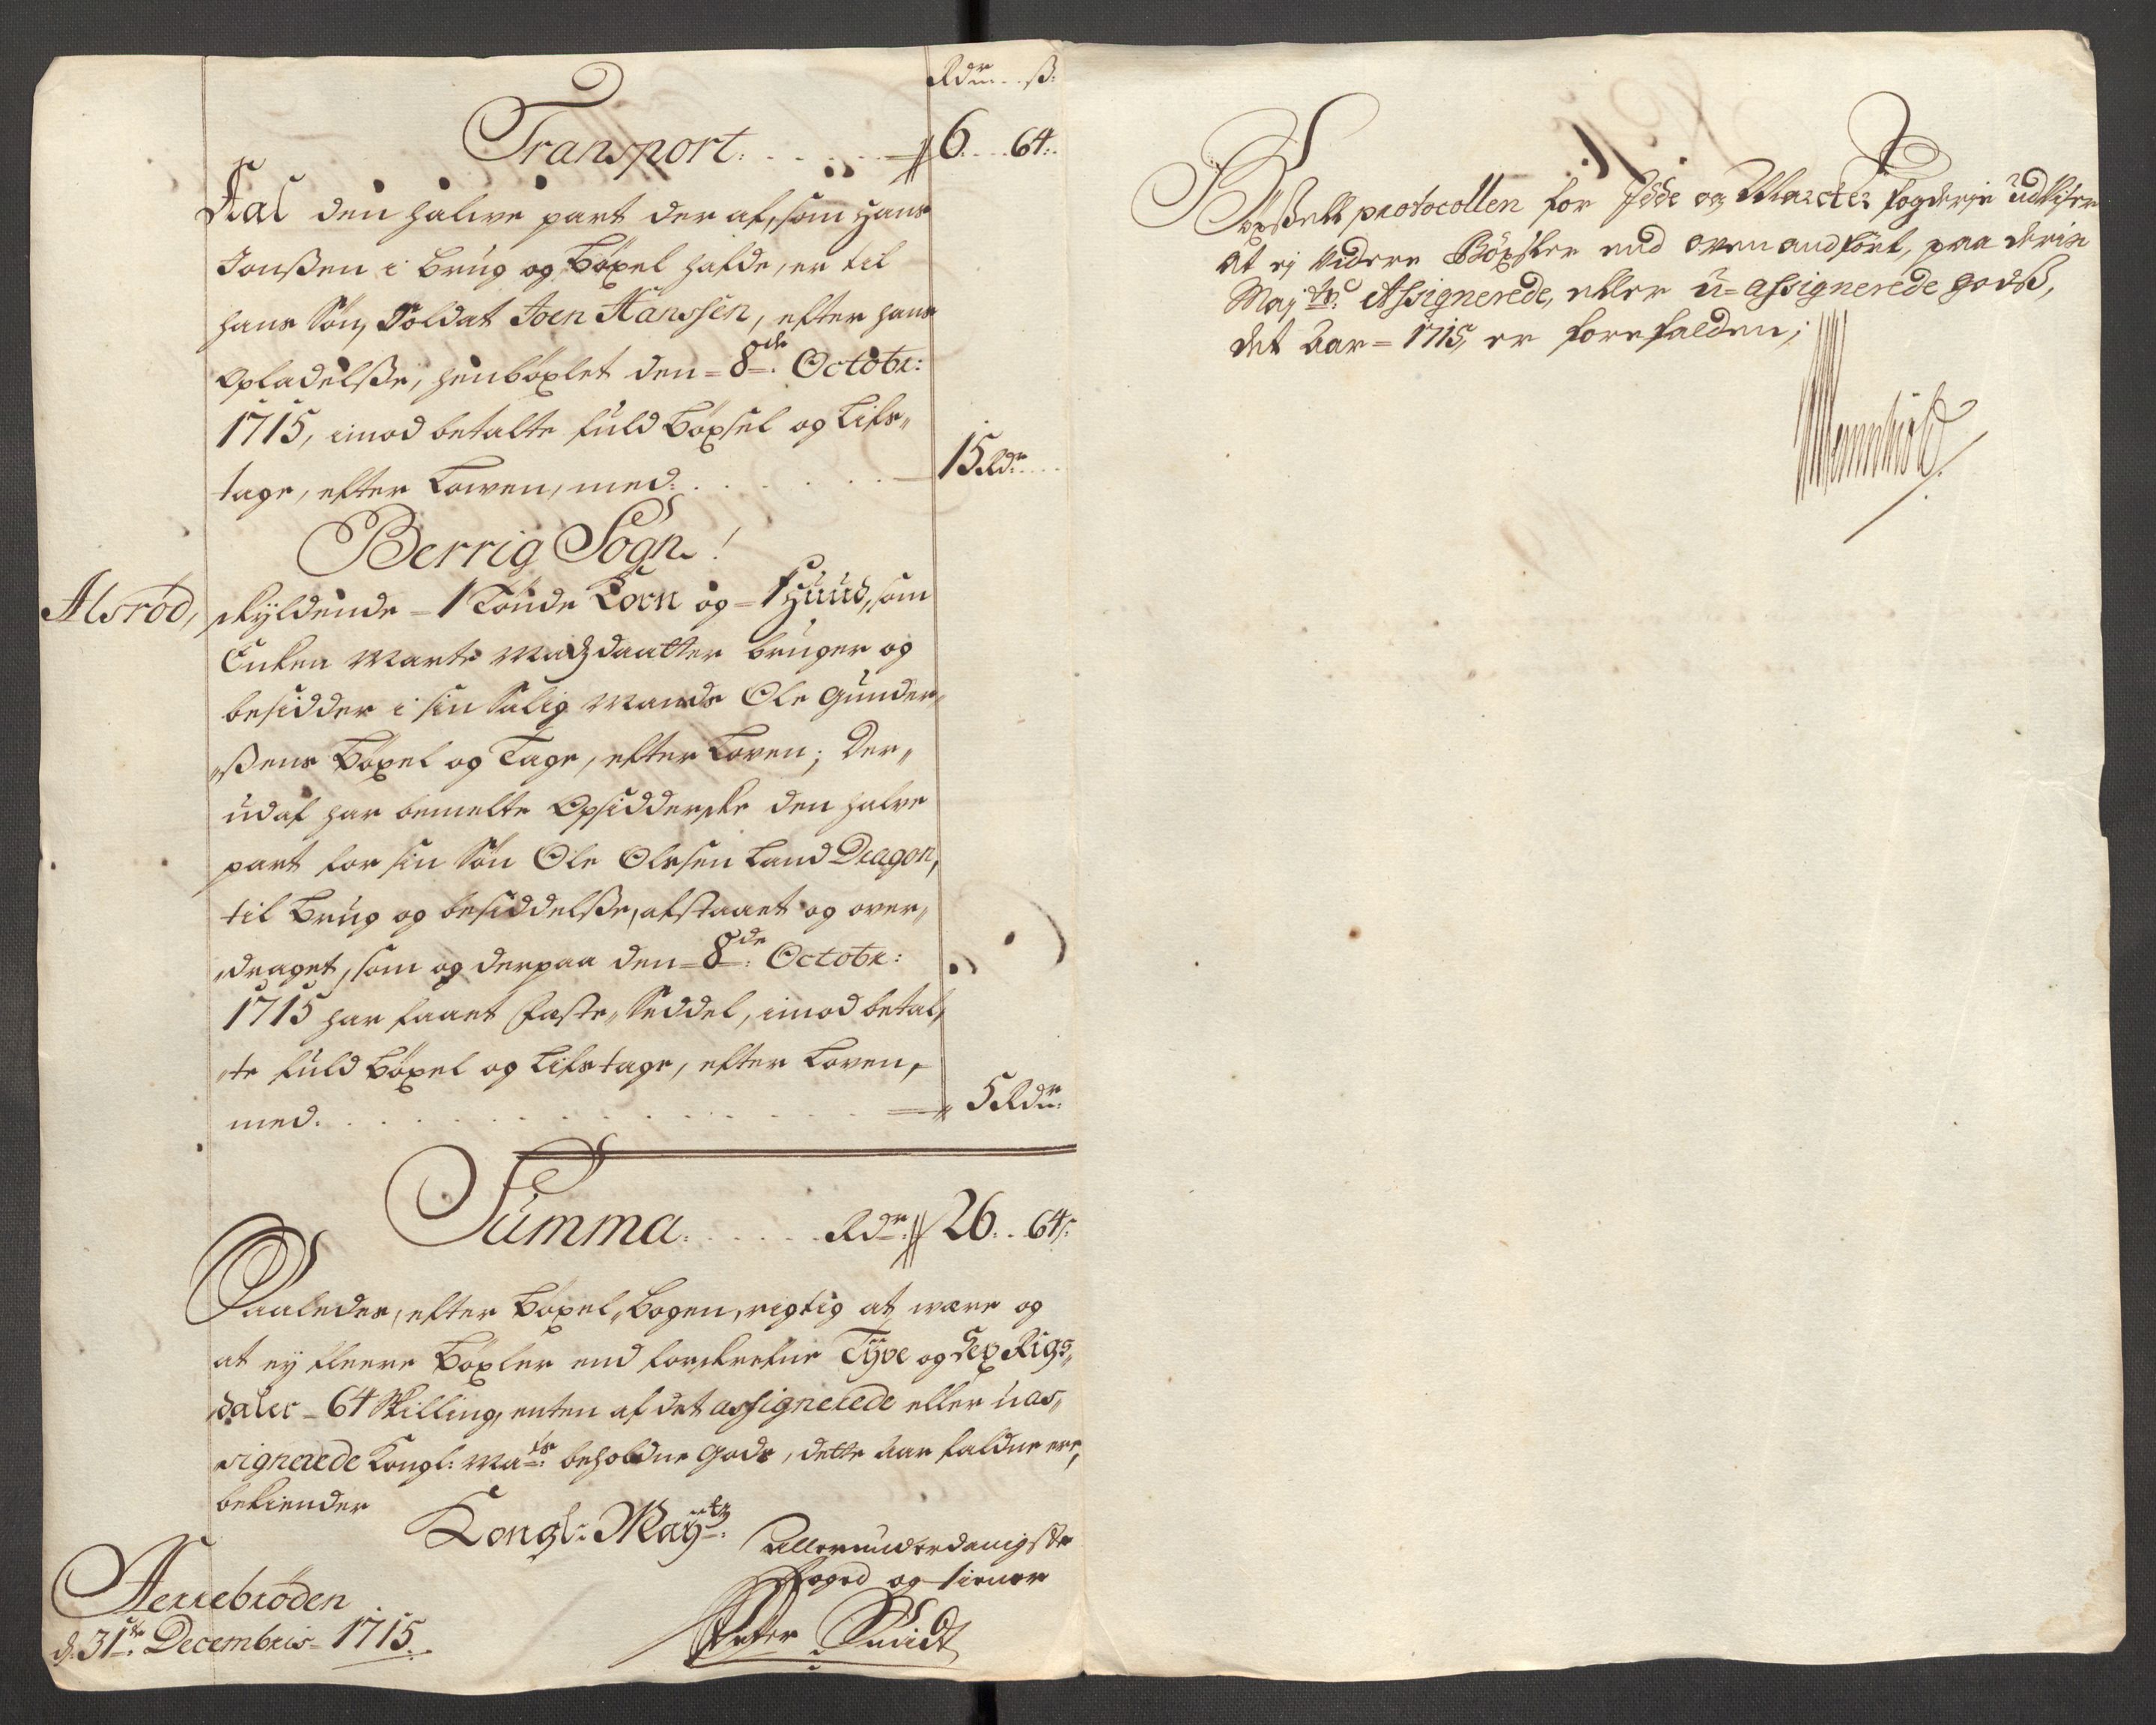 Rdr ß:
Transport: 6. 64:
den halve part der af, som Hans
Jonßen i brug og Böxel hafde, er til
hans Søn, Soldat Joen Hanssen, efter hans
Opladelße, henböxlet den = 8de Octobr:
1715, imod betalte fuld Böxsel og Lifs„
tage, efter Lowen, med. 15 Rdr
Berrig Sogn!
Alsröd, skyldende = 1 Tönde Korn og = 1 Huud, som
Enken Marte Madzdaatter bruger og
besidder i sin Salig Mands Ole Gunder„
„ßens Böxel og Tage, efter Loven; Der„
udaf har bemelte Opsidderske den halve
part for sin Søn Ole Olesen Land Dragon,
til Brug og besiddelße, afstaaet og over„
„draget, som og derpaa den = 8de: Octobr:
1715 har faaet Fæste„Seddel, imod betal„
„te fuld Böxel og Lifstage, efter Loven,
med. 5 Rdr:
Summa: Rdr: 26. 64:
Saaledes, efter Böxel„Bogen, rigtig at være og
at ej fleere Böxler end forskrefne Tÿve og Sex Rigs„
daler = 64 Skilling, enten af det assignerede eller uas„
signerede Kongl: Mats: beholdne Gods, dette Aar faldne ere,
bekiender
Kongl: Mayts:
Allerunderdanigste
Foged og tiener
Peter Smidt
Aerrebröden
d. 31te Decembris = 1715.
Böxsell protocollen for Idde og Marcker fogderie udviser
at ej videre Böxsler end ovenanfört, paa deris
Majts: Assignerede, eller u=assignerede godß,
det Aar = 1715, er forefalden;